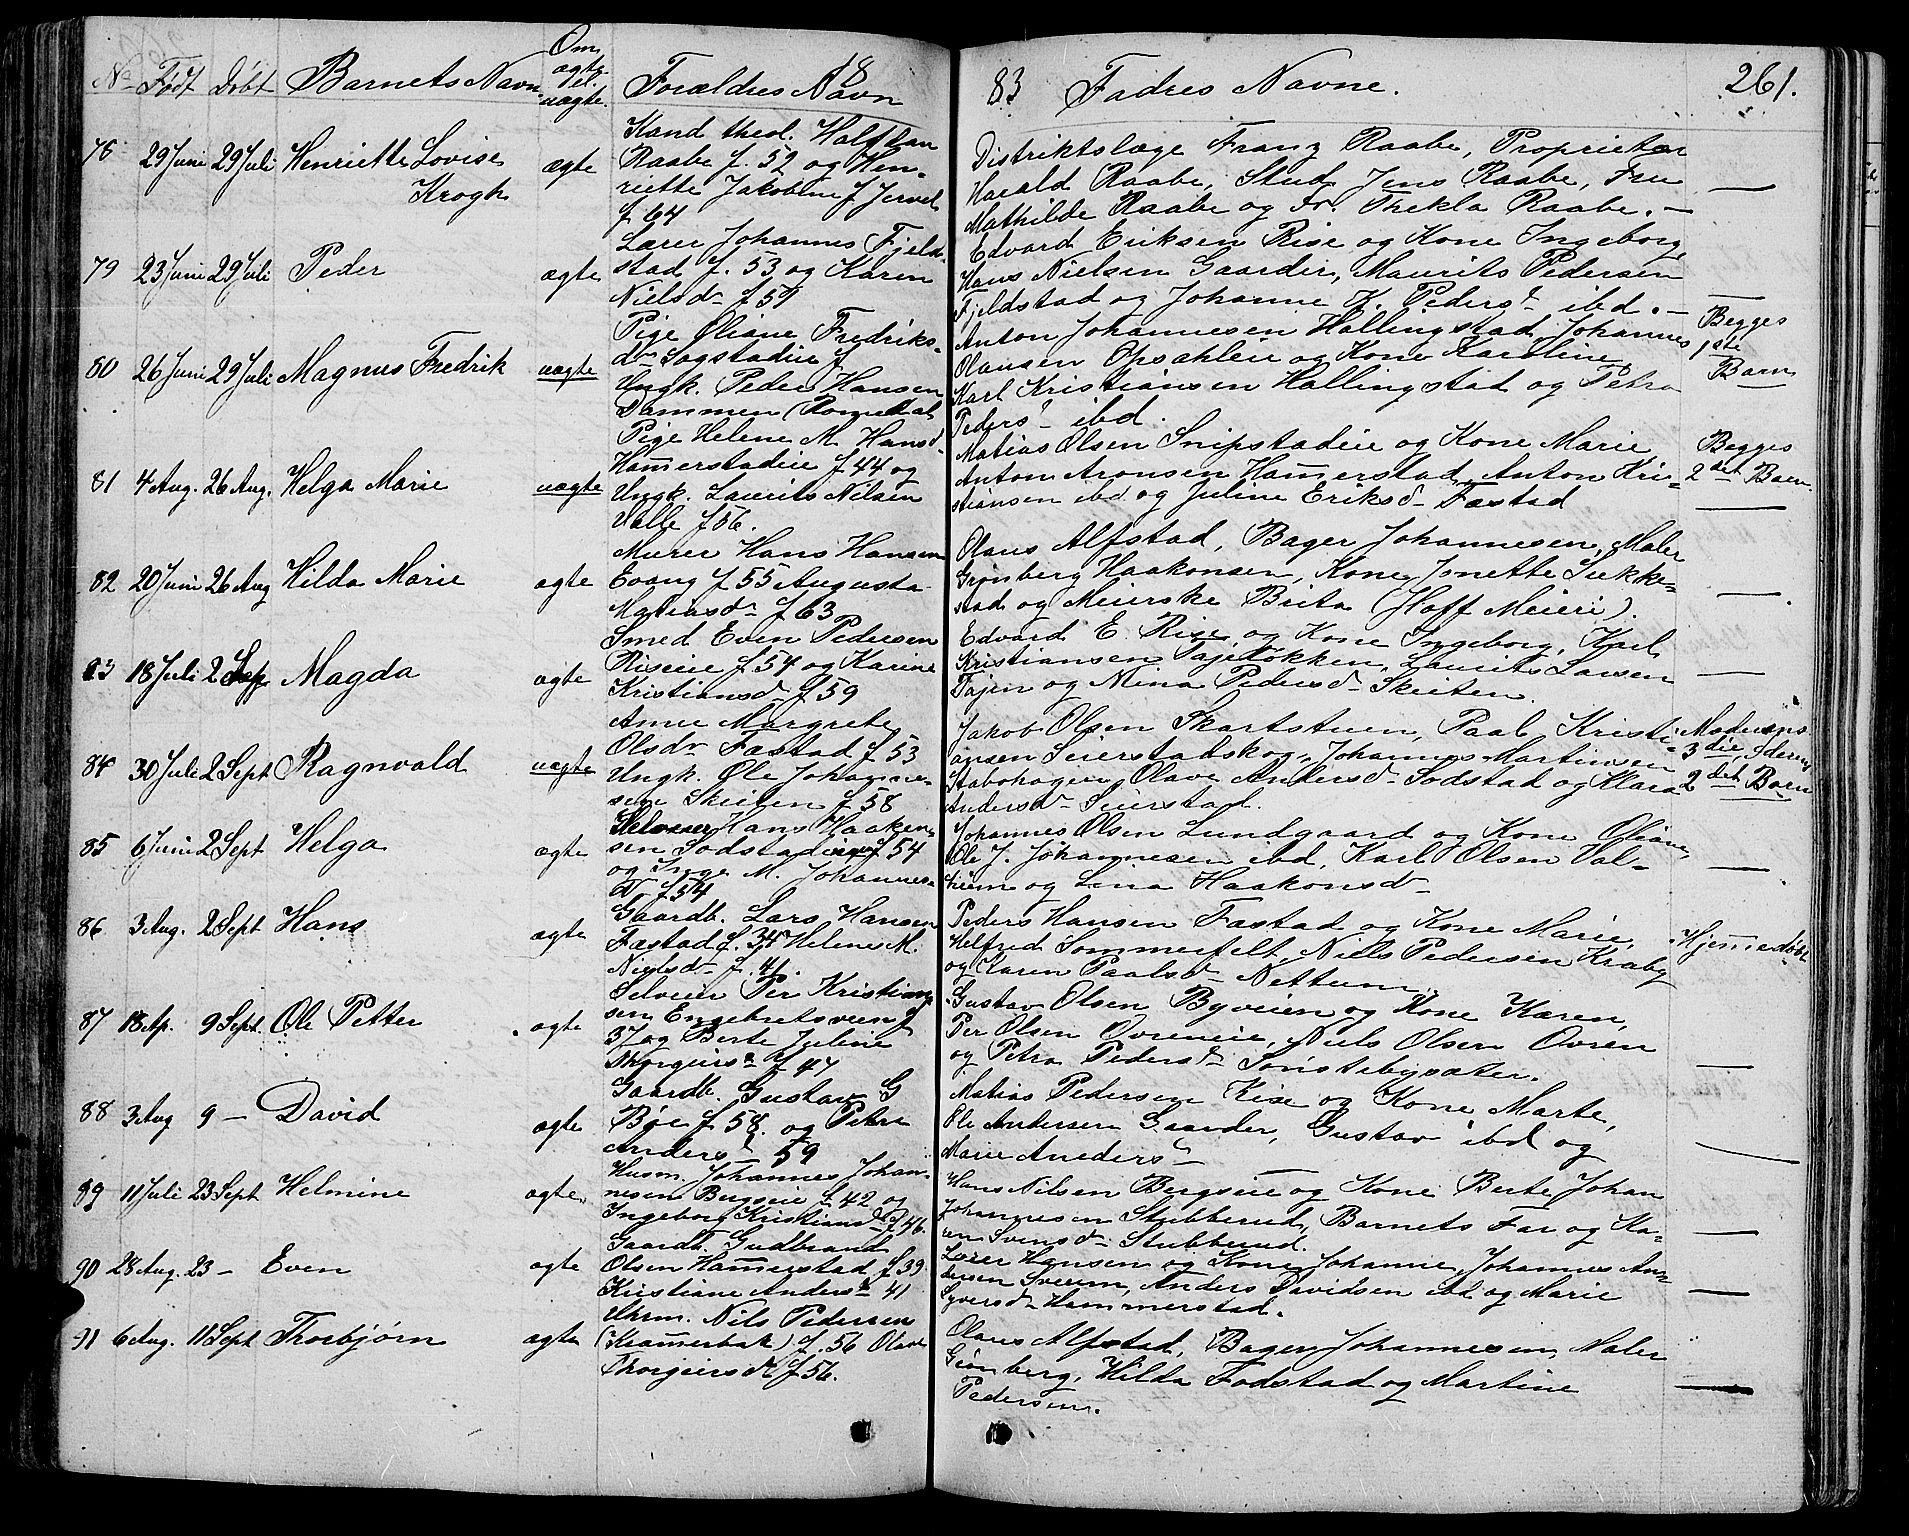 No Født Døbt Barnets Navn. Om ægte el. uægte. Forældres Navn 18
83 Fadres Navne. 261.
78 29 Juni 29 Juli Henriette Lovise Krogh ægte
Kand theol. Halfdan
Raabe f. 52 og Hen-
riette Jakobine f Jervel
f 64
Distriktslæge Franz Raabe, Proprietær
Harald Raabe, Stud Jens Raabe, Fru
Mathilde Raabe og Fr. Thekla Raabe. —
79 23 Juni 29 Juli Peder ægte
Lærer Johannes Fjeld-
stad f. 53 og Karen
Nielsdr f 59
Edvard Eriksen Rise og Kone Ingeborg,
Hans Nielsen Gaarder, Maurits Pedersen
Fjeldstad og Johanne K. Pedersd ibd. —
80 26 Juni 29 Juli Magnus Fredrik uægte
Pige Oliane Fredriks-
dr Sagstadeie f
Ungk. Peder Hansen
Dammen (Romedal
Anton Johannesen Hallingstad, Johannes
Olausen Opsahleie og Kone Karoline,
Karl Kristiansen Hallingstad og Petra
Peders- ibd.
Begges
1ste
Barn
81 4 Aug. 26 Aug. Helga Marie uægte
Pige Helene M. Hansd-
Hamerstadeie f 44 og
Ungk. Laurits Nilsen
Valle f 56.
Matias Olsen Snipstadeie og Kone Marie
Anton Aronsen Hamerstad, Anton Kri-
stiansen ibd og Juline Eriksd- Fæstad
Begges
2det Barn.
82 20 Juni 26 Aug Hilda Marie ægte
Murer Hans Hansen
Evang f 55 Augusta
Matiasd- f 63
Olaus Alfstad, Bager Johannesen, Maler
Grønberg Haakonsen, Kone Jonette Sukke-
stad og Meierske Brita (Hoff Meieri).
83 18 Juli 2 Sep Magda ægte
Smed Even Pedersen
Riseeie f 54 og Karine
Kristiansd- f 59
Edvard E. Rise og Kone Ingeborg, Karl
Kristiansen Tajeløkken, Laurits Larsen
Tajen og Nina Pedersd- Skeiten.
84 30 Juli 2 Sept Ragnvald uægte
Anne Margrete
Olsdr Fæstad f 53
Ungk. Ole Johanne-
sen Skeiten f 58
Jakob Olsen Skartstuen, Paal Kristi-
ansen Seierstadskog., Johannes Martinsen
Stabohagen, Olave Andersd- Sodstad og Klara
Andersd- Seierstad.
Moderens
3die, Fderns
2det Barn
85 6 Juni 2 Sept Helga ægte
Selveier Hans Haaken-
sen Sodstad f 54
og Inge M. Johannes-
dr f 54
Johannes Olsen Lundgaard og Kone Oliane,
Ole J. Johannesen ibd, Karl Olsen Val-
heim og Lina Haakonsd-
86 3 Aug. 2 Sept Hans ægte
Gaardb. Lars Hansen
Fæstad f. 34 Helene M.
Nielsd- f. 41.
Peders Hansen Fæstad og Kone Marie,
Helfred Sommerfelt, Niels Pedersen Kraby
og Karen Paalsd- Nettum.
Hjemedøbt
87 18 Ap. 9 Sept. Ole Petter ægte
Selveier Per Kristian-
sen Engebretsveen f
37 og Berte Juline
Thorgeirsd f 47
Gustav Olsen Byveien og Kone Karen,
Per Olsen Øvreneie, Niels Olsen Øvren
og Petra Pedersd Sønstebysæter.
88 3 Aug 9 — David ægte
Gaardb. Gustav G
Bøe f 58. og Petra
Andersd 59
Matias Pedersen Kise og Kone Marte,
Ole Andersen Gaarder, Gustav ibd og
Marie Aneders-
89 11 Juli 23 Sept Helmine ægte.
Husm. Johannes Johan-
nesen Bergseie f 42 og
Ingeborg Kristiansd f 46.
Hans Nilsen Bergseie og Kone Berte, Johan
Johannesen Stubberud, Barnets Far og Ka-
ren Svensd- Stubberud.
90 28 Aug. 23 — Even ægte
Gaardb. Gudbrand
Olsen Hamerstad f 39.
Kristiane Andersd 41
Lærer Hansen og Kone Johanne, Johannes An-
dersen Sveum, Anders Davidsen ibd og Marie
Syversd- Hammerstad.
91 6 Aug. 11 Sept Thorbjørn ægte
Uhrm. Nils Pedersen
(Kramerbak) f. 56 Olave
Thorgeirsd f 56.
Olaus Alfstad, Bager Johannesen, Maler
Grønberg, Hilda Fodstad og Martine
Pedersen.